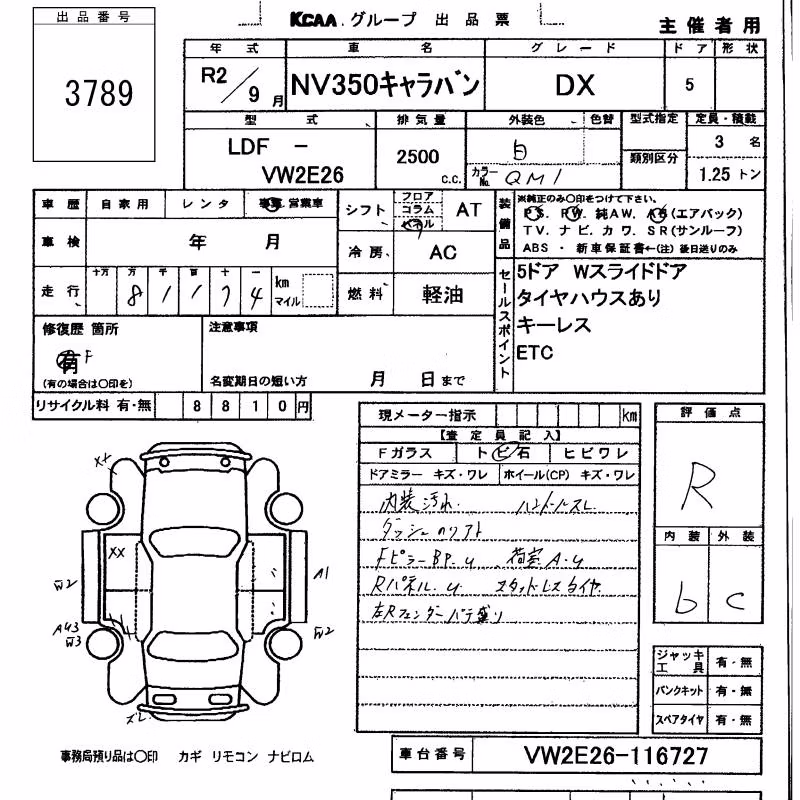 出品番号
3789
KCAA.グループ 出品票
主催者用
年式 車名 グレード ドア 形状
R2/9月 NV350キャラバン DX 5
型式 排気量 外装色 色替 型式指定 定員・積載
LDF - VW2E26 2500 c.c. 白 類別区分 3名
カラーNo. QM1 1.25トン
車歴 自家用 レンタ 事業,営業車 シフト フロア コラム パネル AT
装備品 ※純正のみ○印をつけて下さい。
PS. PW. 純AW. AB(エアバック)
TV. ナビ. カワ. SR(サンルーフ)
ABS ・ 新車保証書←(注) 後日送りのみ
車検 年 月 冷房 AC
走行 十万 万 千 百 十 一 km マイル
8 1 1 7 4 燃料 軽油
セールスポイント
5ドア Wスライドドア
タイヤハウスあり
キーレス
ETC
修復歴 箇所 注意事項
有 F
(有の場合は○印を) 名変期日の短い方 月 日まで
リサイクル料 有・無 8 8 1 0 円
現メーター指示 km
【査定員記入】
Fガラス トビ石 ヒビワレ
ドアミラー キズ・ワレ ホイール(CP) キズ・ワレ
内装汚れ. ハンドルスレ
ダッシュのリフト
FピラーBP.u 荷室A.u
Rパネル.u スタッドレスタイヤ.
左Rフェンダーパテ盛り
評価点
R
内装 外装
b c
XX
XX
W2
A43
W3
A1
W2
ズレ
ジャッキ工具 有・無
パンクキット 有・無
スペアタイヤ 有・無
事務局預り品は○印 カギ リモコン ナビロム
車台番号 VW2E26-116727